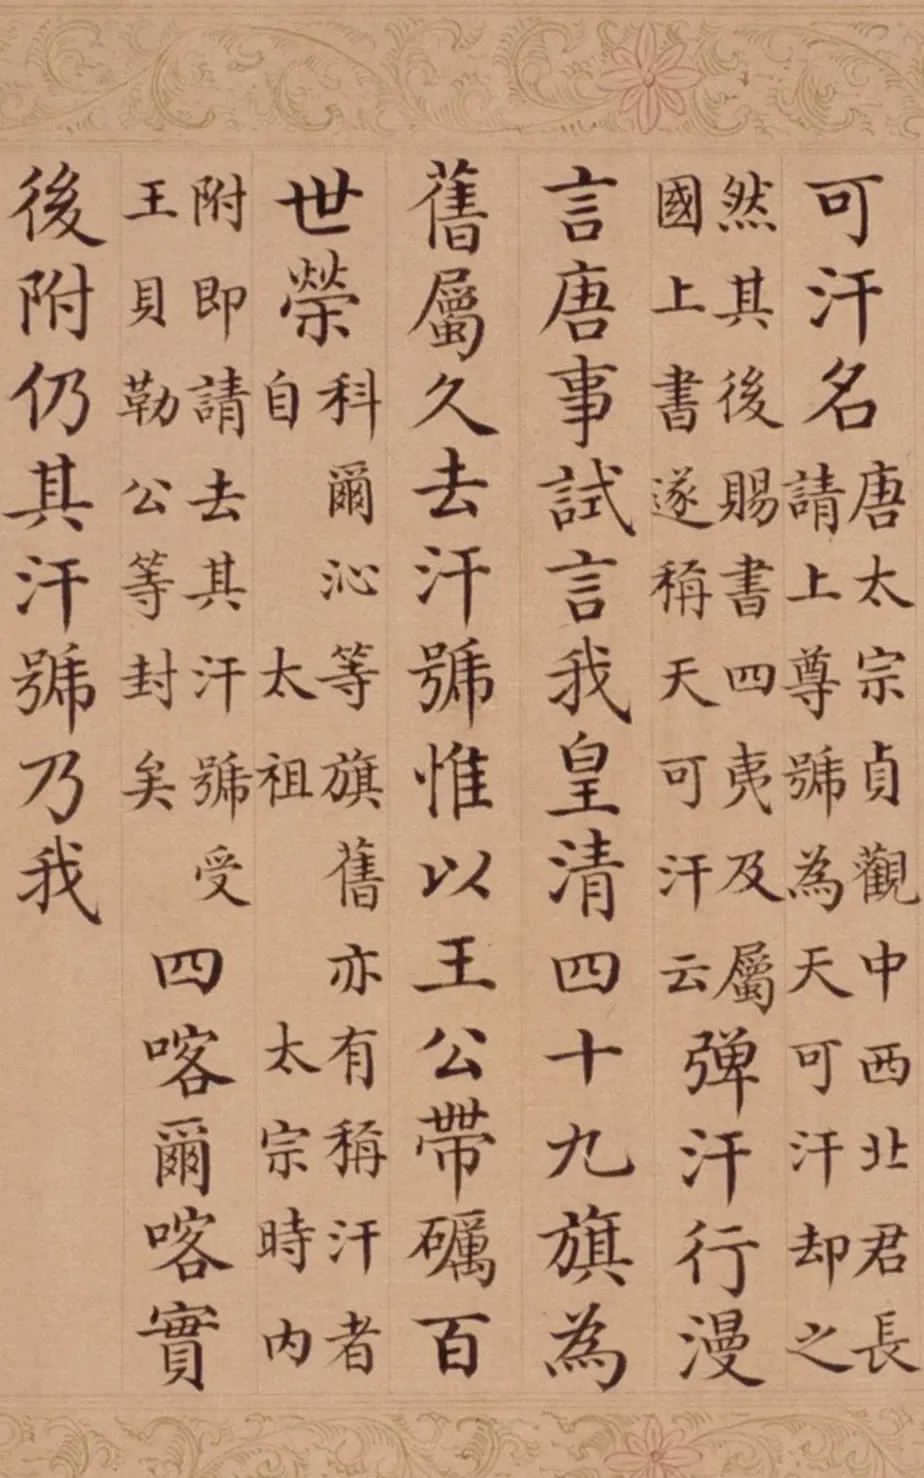 可汗名唐太宗貞觀中西北君長
請上尊號為天可汗却之
然其後賜書四夷及屬
國上書遂稱天可汗云
弹汗行漫
言唐事試言我皇清四十九旗為
舊屬久去汗號惟以王公帶礪百
世榮科爾沁等旗舊亦有稱汗者
自太祖太宗時内
附即請去其汗號受
王貝勒公等封矣
四喀爾喀實
後附仍其汗號乃我